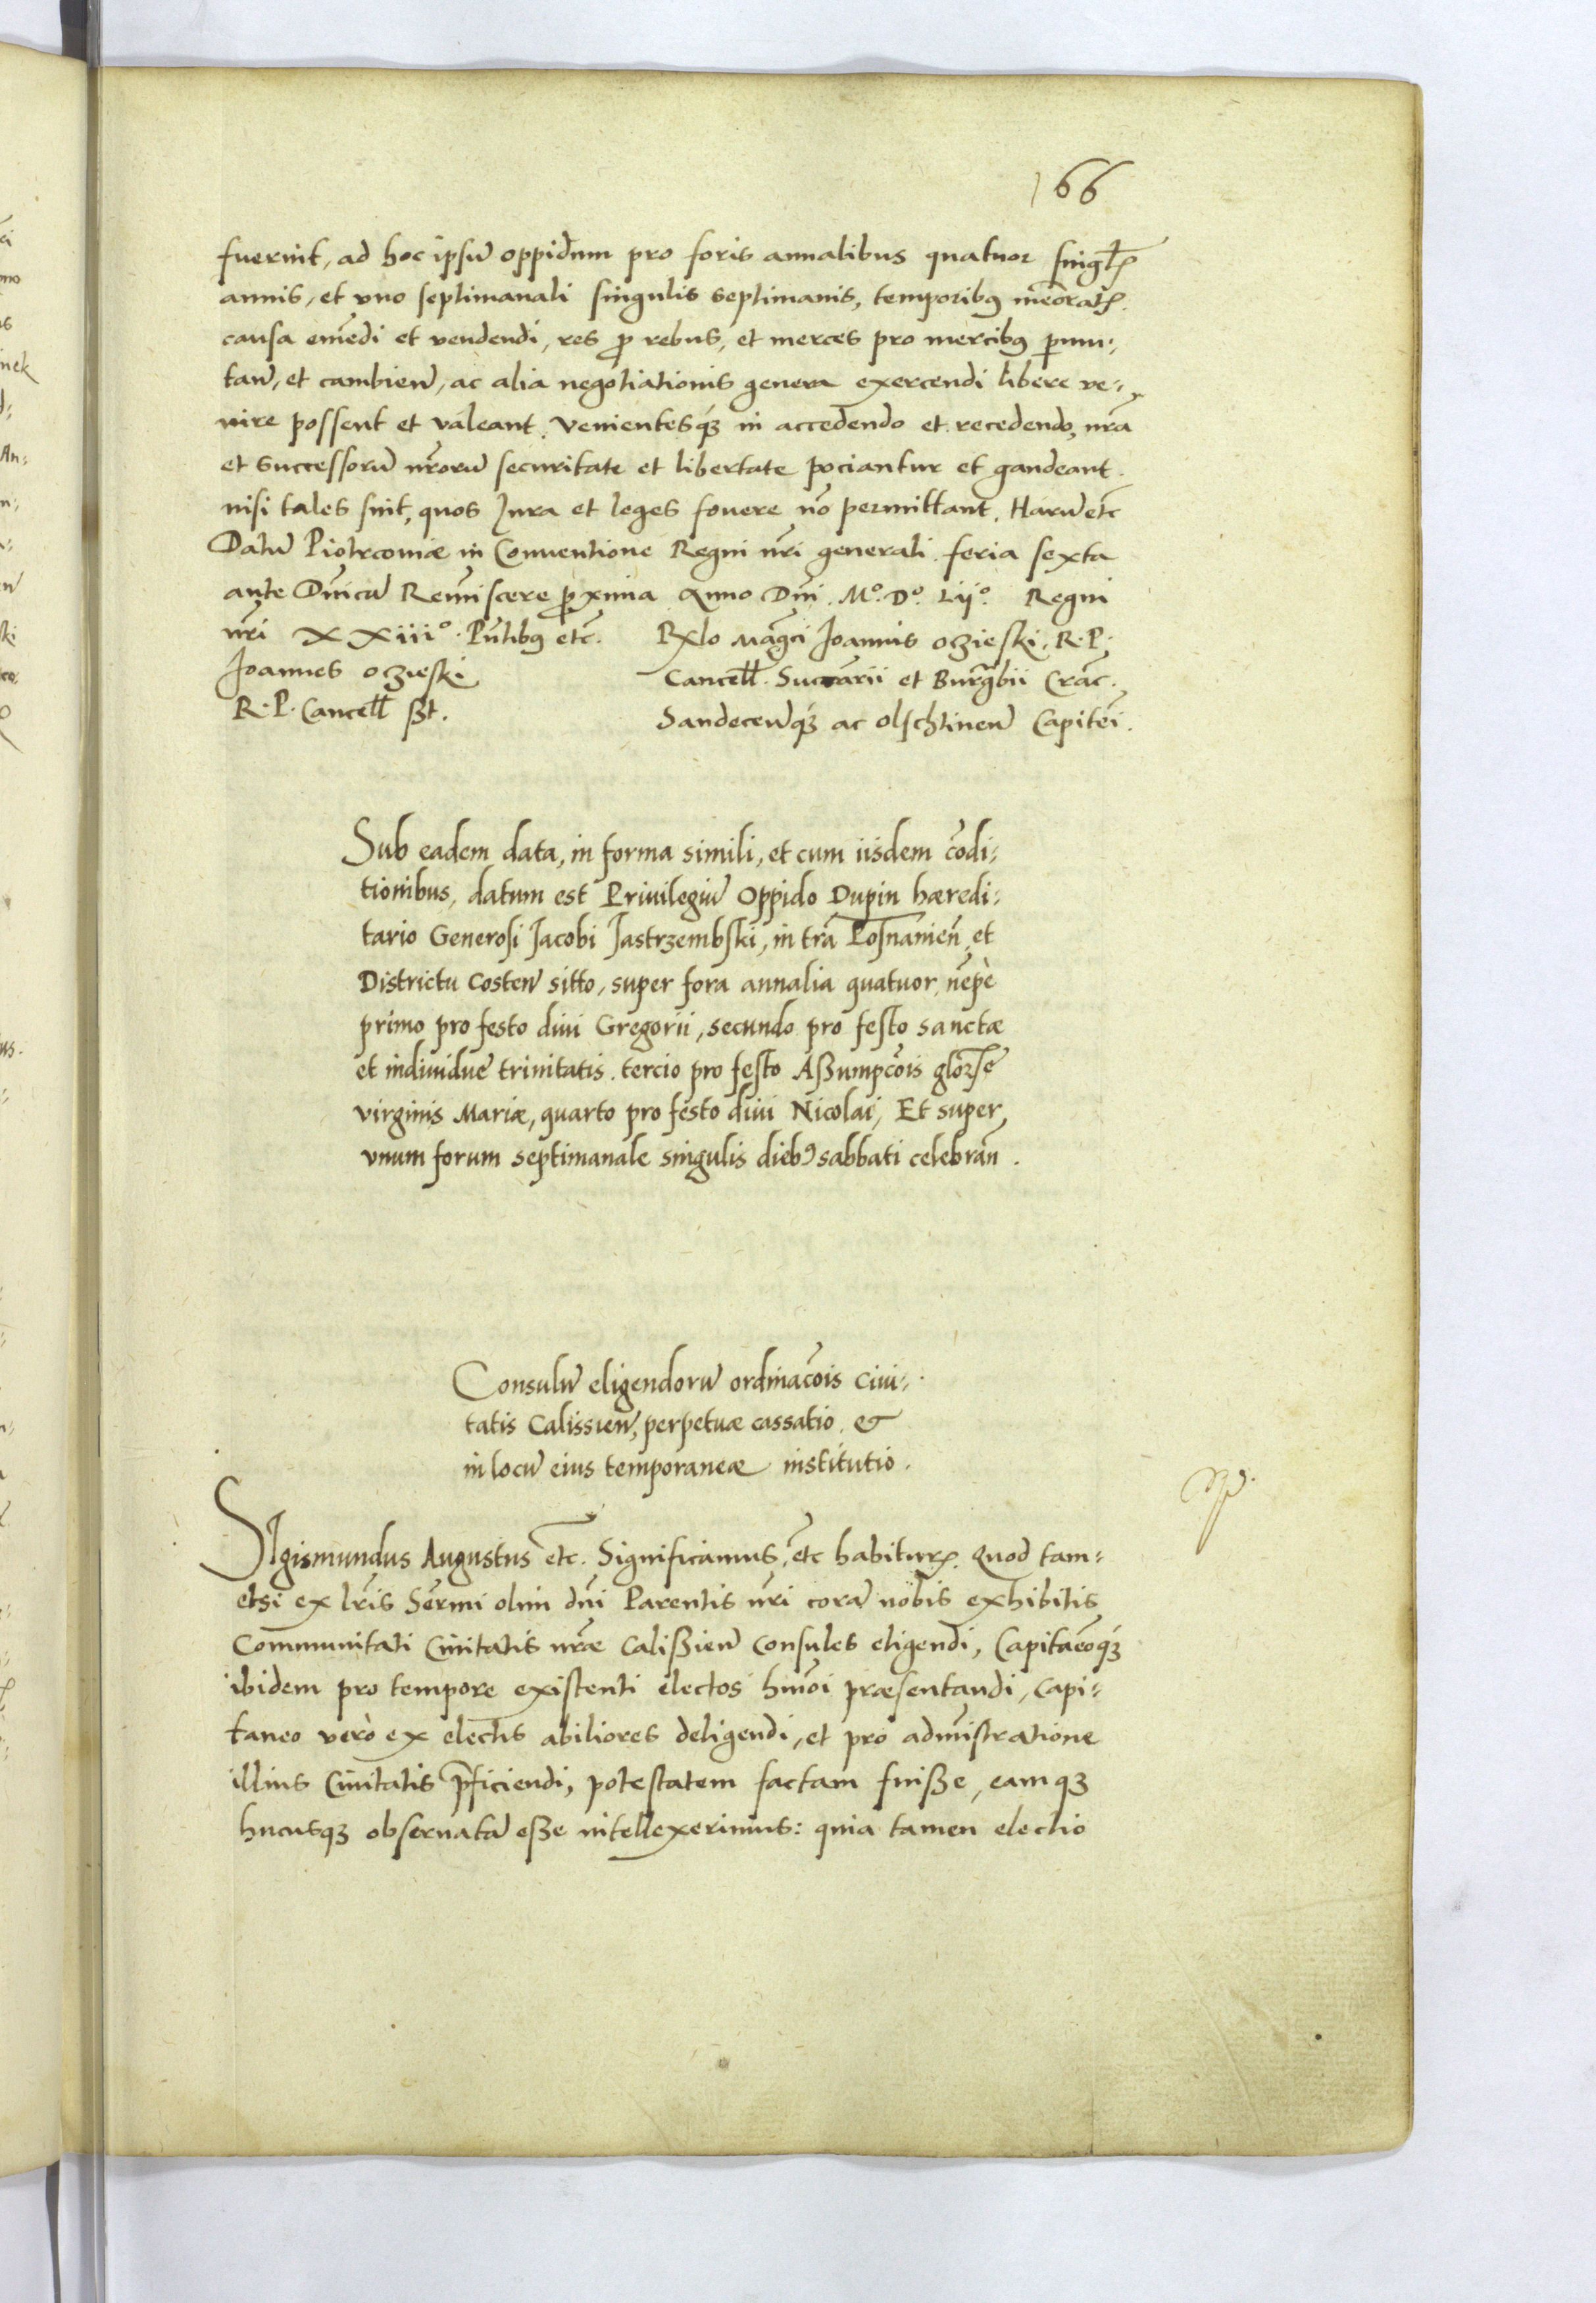 166
fuerint, ad hoc ipsū oppidum pro foris annalibus quatuor singl̄
annis, et vno septimanali singulis septimanis, temporibꝰ meōrat̄
causa emēdi et vendendi, res ꝓ rebus, et merces pro mercibꝰ ꝑmu:
tan̄, et cambien̄, ac alia negotiationis genera exercendi libere ve:
nire possent et valeant. Venientesqꝫ in accedendo et recedendo, nr̄a
et Successorū nr̄orū securitate et libertate pociantur et gaudeant.
nisi tales sint, quos Jura et leges fouere nō permittant. Harū etc̄
Datū Piotrcouiæ in Conuentione Regni nr̄i generali feria sexta
ante Dnīcā Reminīscere ꝓxima Anno Dnī. Mº. Dº. Lijº. Regni
nr̄i XXiiiº. Pn̄tibꝰ etc̄. Rl̄o Maḡci Joannis oczieski. R. P.
Joannes oczieski Cancell̄. Succārii et Burgrābii Crac̄.
R. P. Cancell̄ ßt. Sandecen̄qꝫ ac olschtinen̄ Capitēi.
Sub eadem data, in forma simili, et cum iisdem cōdi:
tionibus, datum est Priuilegiū Oppido Dupin hæredi:
tario Generosi Jacobi Jastrzembski, in trā Posnanien̄, et
Districtu Costen̄ sitto, super fora annalia quatuor, nēpè
primo pro festo diui Gregorii, secundo pro festo sanctæ
et indiuiduę trinitatis. tercio pro festo Aßumpcōis glorīse
virginis Mariæ, quarto pro festo diui Nicolai, Et super
vnum forum septimanale singulis diebꝰ sabbati celebrān.
Consulū eligendorū ordinacōis Ciui:
tatis Calissien̄, perpetuæ cassatio. &
in locū eius temporaneæ institutio.
SIgismundus Augustus etc̄. Significamus, etc̄ habiturꝝ. Quod tam:
etsi ex lr̄is Serm̄i olim dn̄i Parentis nr̄i corā nobis exhibitis
Communitati Ciuitatis nr̄æ Calißien̄ Consules eligendi, Capitaēoqꝫ
ibidem pro tempore existenti electos hm̄oi præsentandi, Capi:
taneo verò ex electis abiliores deligendi, et pro admīstratione
illius Ciuitatis p̄ficiendi, potestatem factam fuiße, eamqꝫ
hucusqꝫ obseruatā eße intellexerimus: quia tamen electio